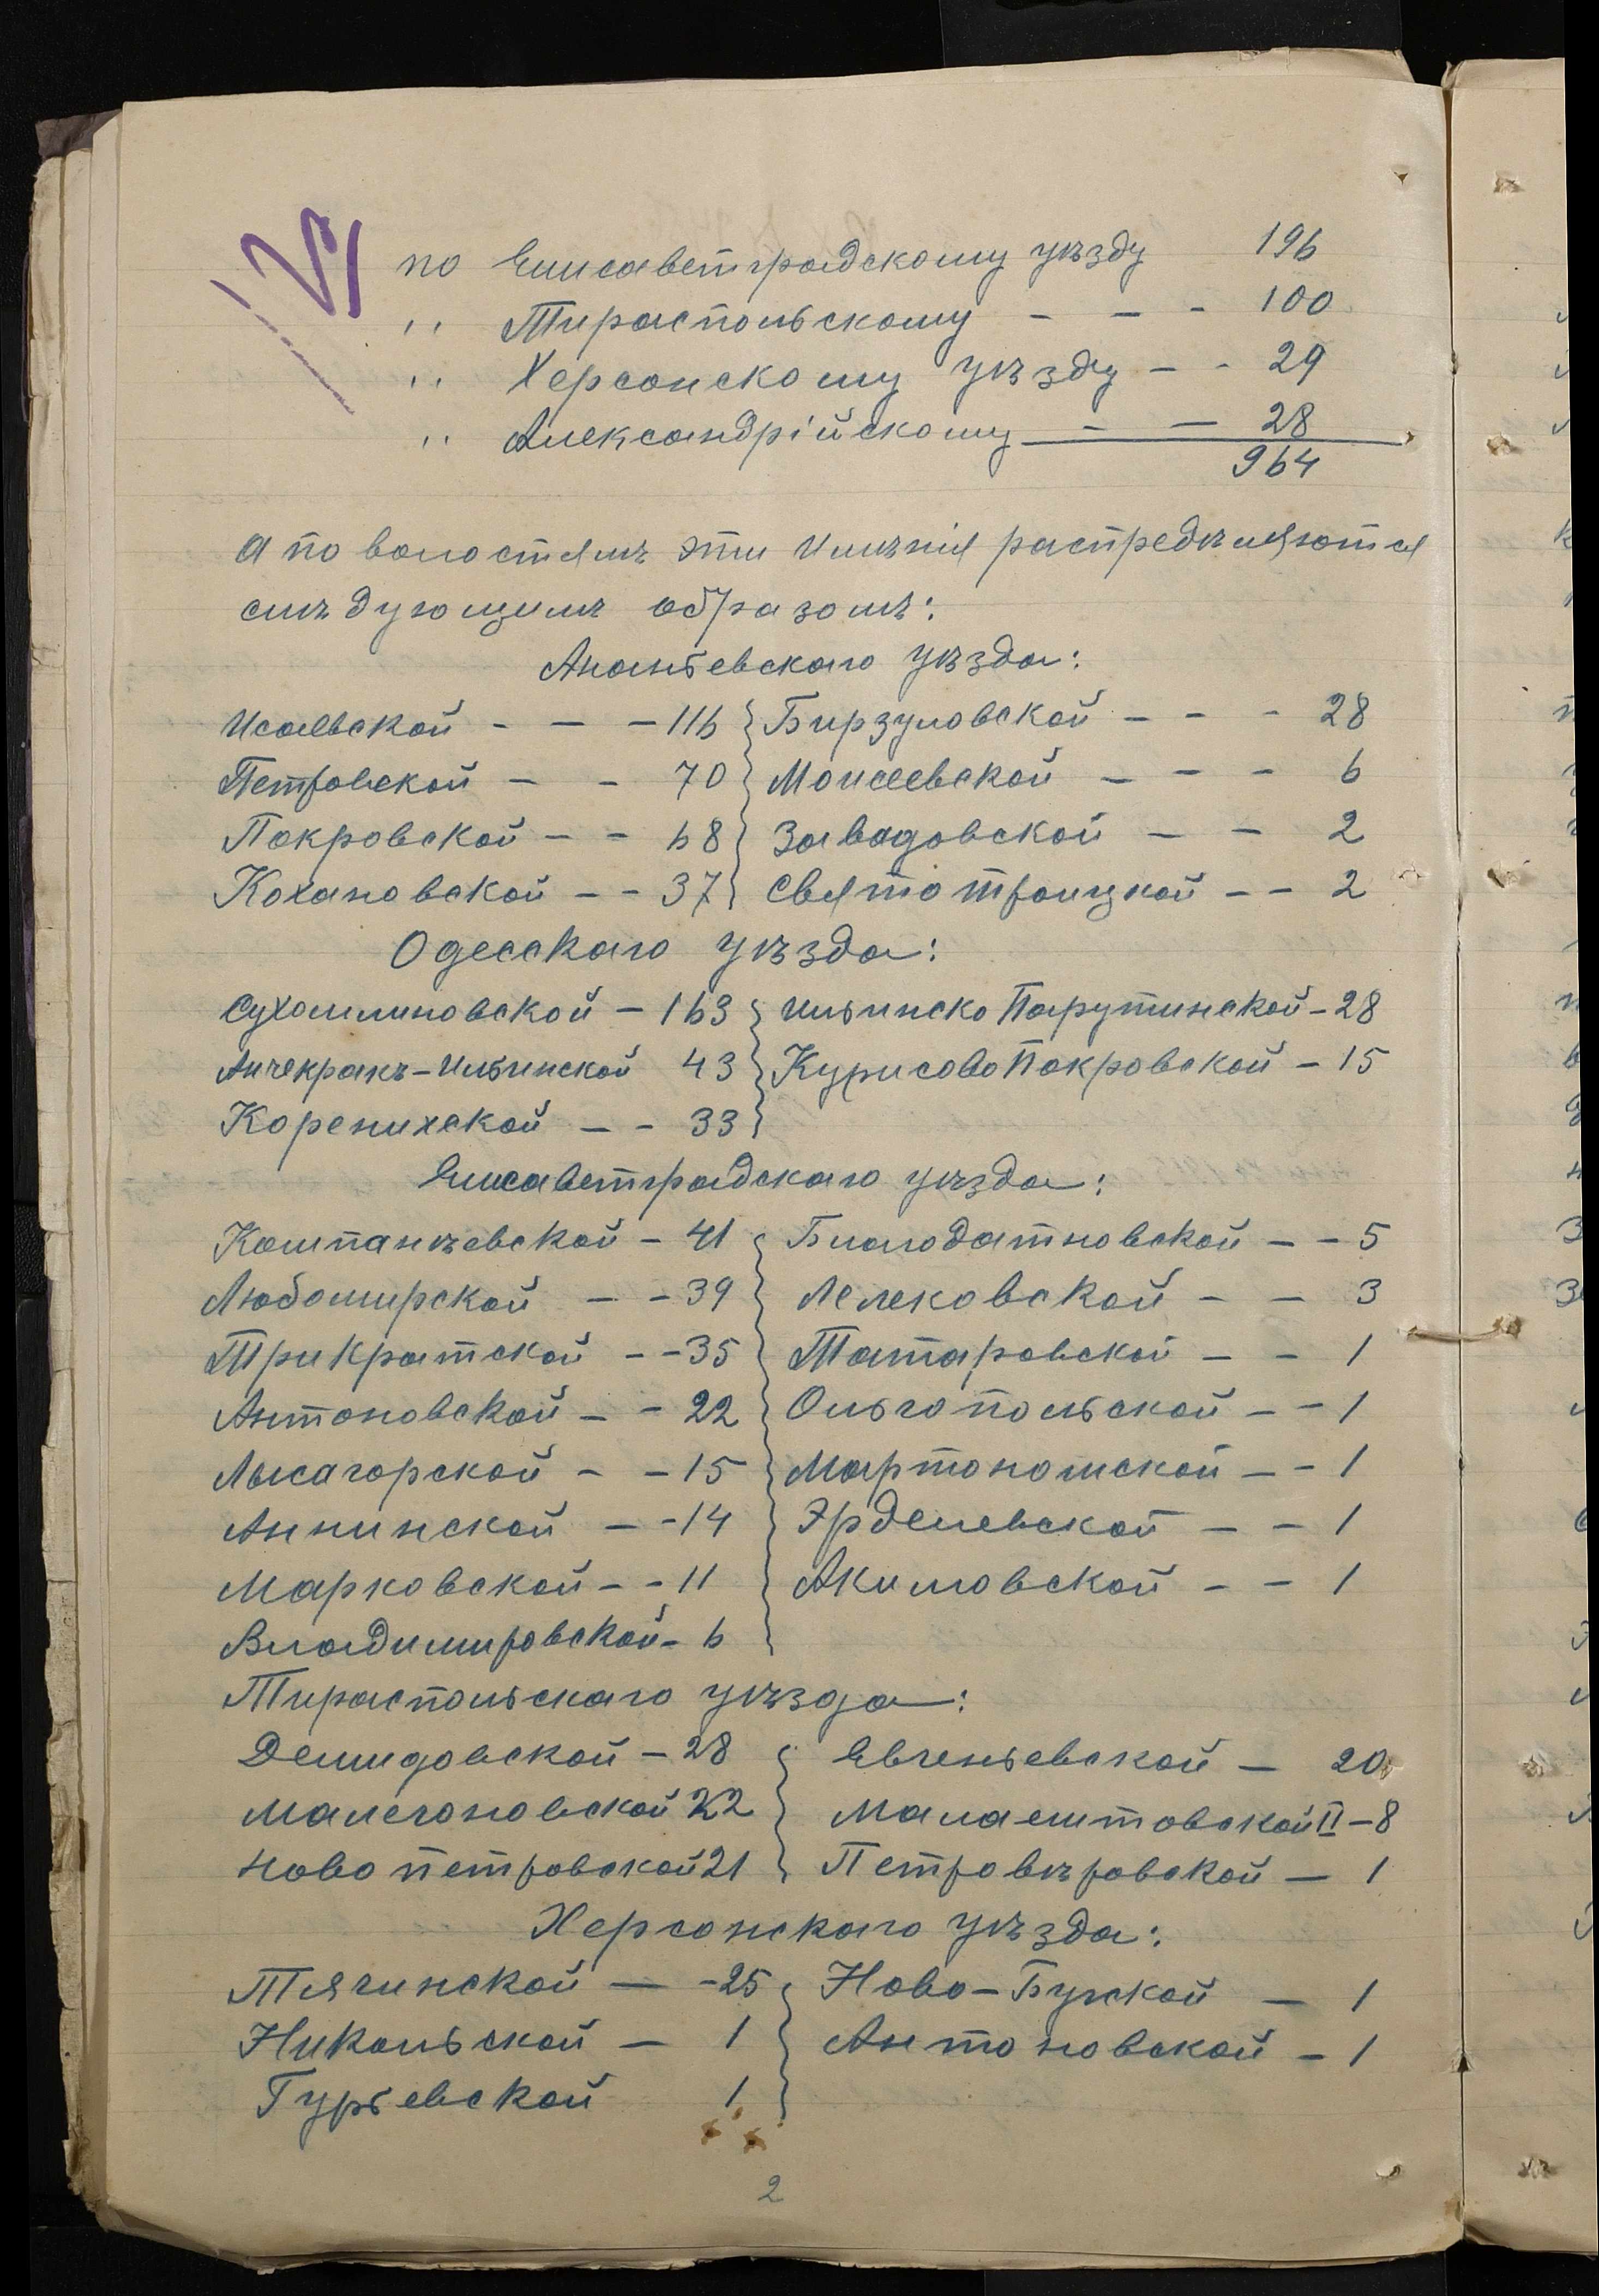 по Елисаветградскому уѣзду 196
" Тираспольскому - - - 100
" Херсонскому уѣзду - - 29
" Александрійскому - - 28
964
А по волостямъ эти имѣнія распредѣляются
слѣдующимъ образомъ:
Ананьевскаго уѣзда:
Исаевской - - - 116 } Бирзуловской - - - 28
Петровской - - 70 } Моисеевской - - - 6
Покровской - - 68 } Завадовской - - 2
Кохановской - - 37 } Святотроицкой - - 2
Одесскаго уѣзда:
Сухомлиновской - 163 } Ильинско Парутинской - 28
Анчекракъ-Ильинской 43 } Курисово Покровской - 15
Коренихской - - 33 }
Елисаветградскаго уѣзда:
Компанѣевской - 41 } Благодатновской - - 5
Любомирской - - 39 } Лелековской - - 3
Трикратской - - 35 } Татаровской - - 1
Антоновской - - 22 } Ольгопольской - - 1
Лысагорской - - 15 } Мартоношской - - 1
Аннинской - - 14 } Эрделевской - - 1
Марковской - - 11 } Акимовской - - 1
Владимировской - 6 }
Тираспольскаго уѣзда:
Демидовской - 28 } Евгеньевской - 20
Малегоновской 22 } Малаештовской II - 8
Ново петровской 21 } Петровѣровской - 1
Херсонскаго уѣзда:
Тягинской - - 25 } Ново-Бугской - 1
Никольской - 1 } Антоновской - 1
Гурьевской 1 }
2